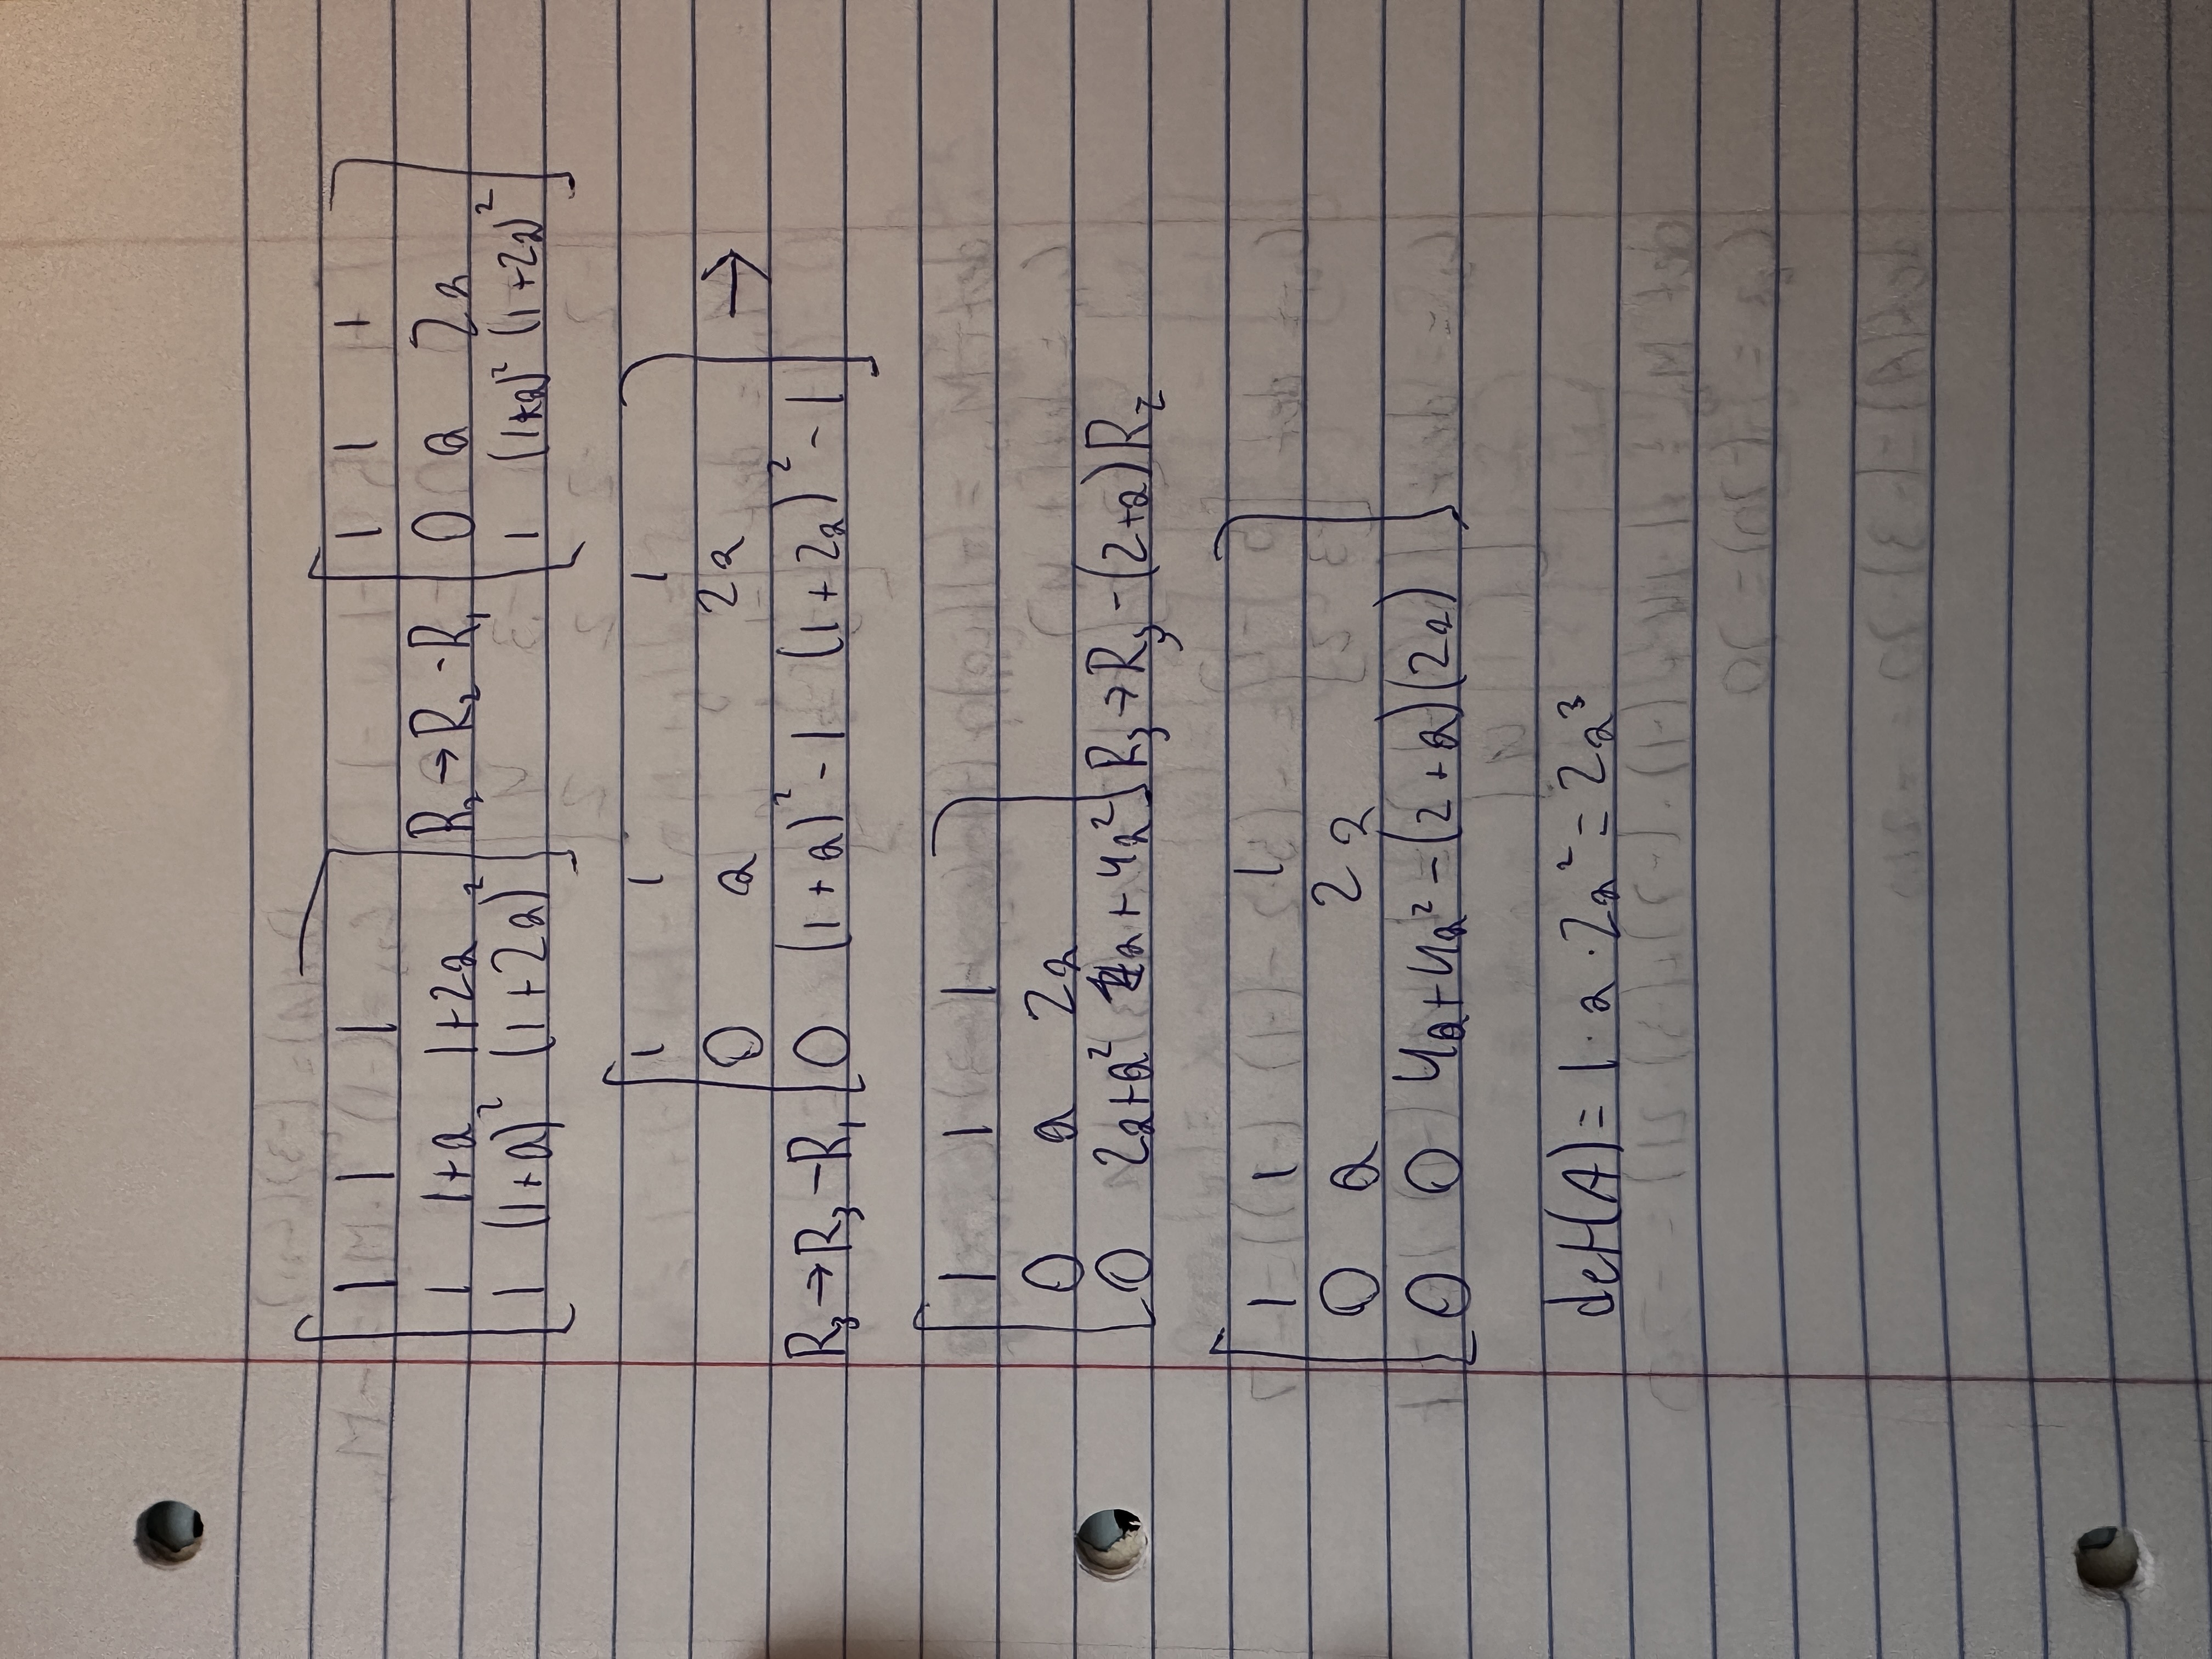 1 1 1 1 1 1
1 1+a 1+2a R₂→R₂-R₁ 0 a 2a
1 (1+a)² (1+2a)² 1 (1+a)² (1+2a)²
1 1 1
0 a 2a →
R₃→R₃-R₁ 0 (1+a)²-1 (1+2a)²-1
1 1 1
0 a 2a
0 2a+a² 4a+4a² R₃→R₃-(2+a)R₂
1 1 1
0 a 2a
0 0 4a+4a²-(2+a)(2a)
det(A)=1·a·2a²=2a³